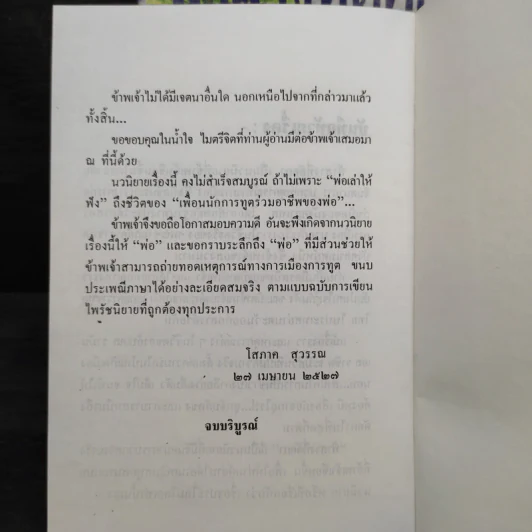 ข้าพเจ้าไม่ได้มีเจตนาอื่นใด นอกเหนือไปจากที่กล่าวมาแล้ว
ทั้งสิ้น...
ขอขอบคุณในน้ำใจ ไมตรีจิตที่ท่านผู้อ่านมีต่อข้าพเจ้าเสมอมา
ณ ที่นี้ด้วย
นวนิยายเรื่องนี้ คงไม่สำเร็จสมบูรณ์ ถ้าไม่เพราะ “พ่อเล่าให้
ฟัง” ถึงชีวิตของ “เพื่อนนักการทูตร่วมอาชีพของพ่อ”...
ข้าพเจ้าจึงขอถือโอกาสมอบความดี อันจะพึงเกิดจากนวนิยาย
เรื่องนี้ให้ “พ่อ” และขอกราบระลึกถึง “พ่อ” ที่มีส่วนช่วยให้
ข้าพเจ้าสามารถถ่ายทอดเหตุการณ์ทางการเมืองการทูต ขนบ
ประเพณีภาษาได้อย่างละเอียดสมจริง ตามแบบฉบับการเขียน
ไพรัชนิยายที่ถูกต้องทุกประการ
โสภาค สุวรรณ
๒๗ เมษายน ๒๕๒๗
จบบริบูรณ์